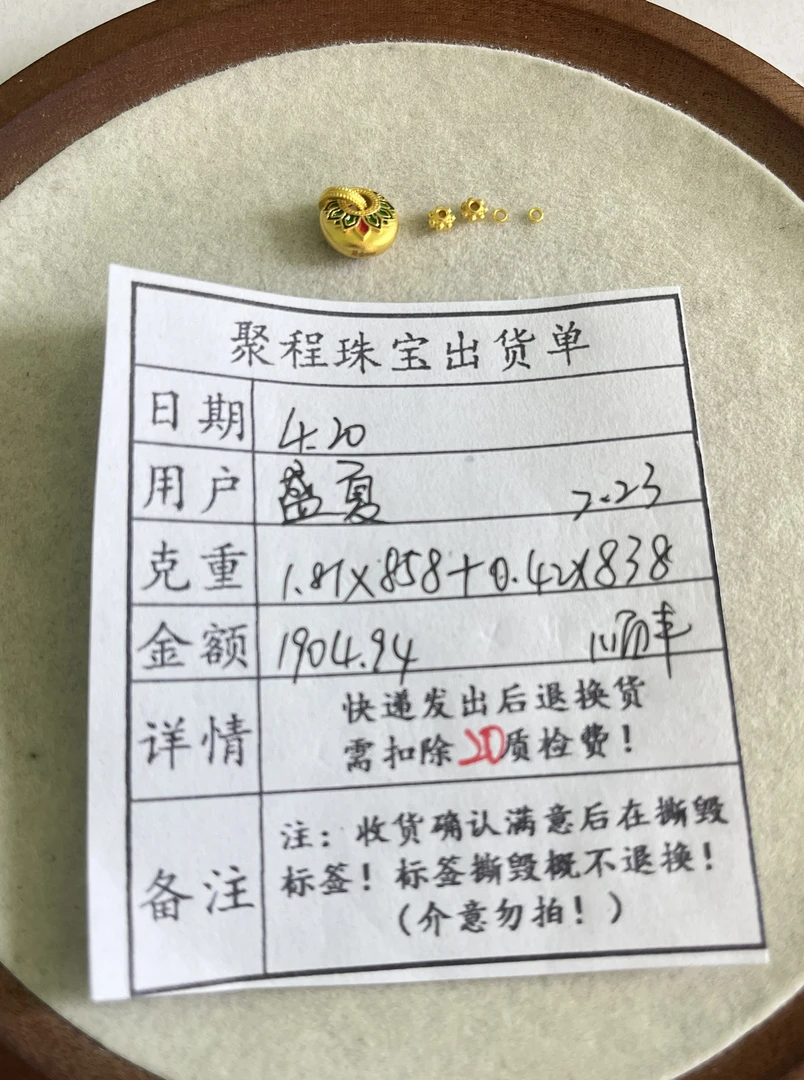 聚程珠宝出货单
日期 4.20
用户 盛夏 2.23
克重 1.81×858+0.42×838
金额 1904.94 顺丰
详情 快递发出后退换货
需扣除20质检费！
备注 注：收货确认满意后在撕毁
标签！标签撕毁概不退换！
（介意勿拍！）